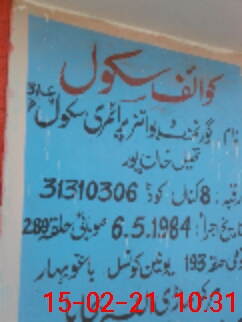 کوائف سکول
نام : گورنمنٹ بوائز پرائمری سکول
تحصیل خان پور
رقبہ : 8 کنال کوڈ 31310306
تاریخ اجرا : 6.5.1984 صوبائی حلقہ 289
قومی حلقہ 193 یونین کونسل باغو بہار
15-02-21 10:31